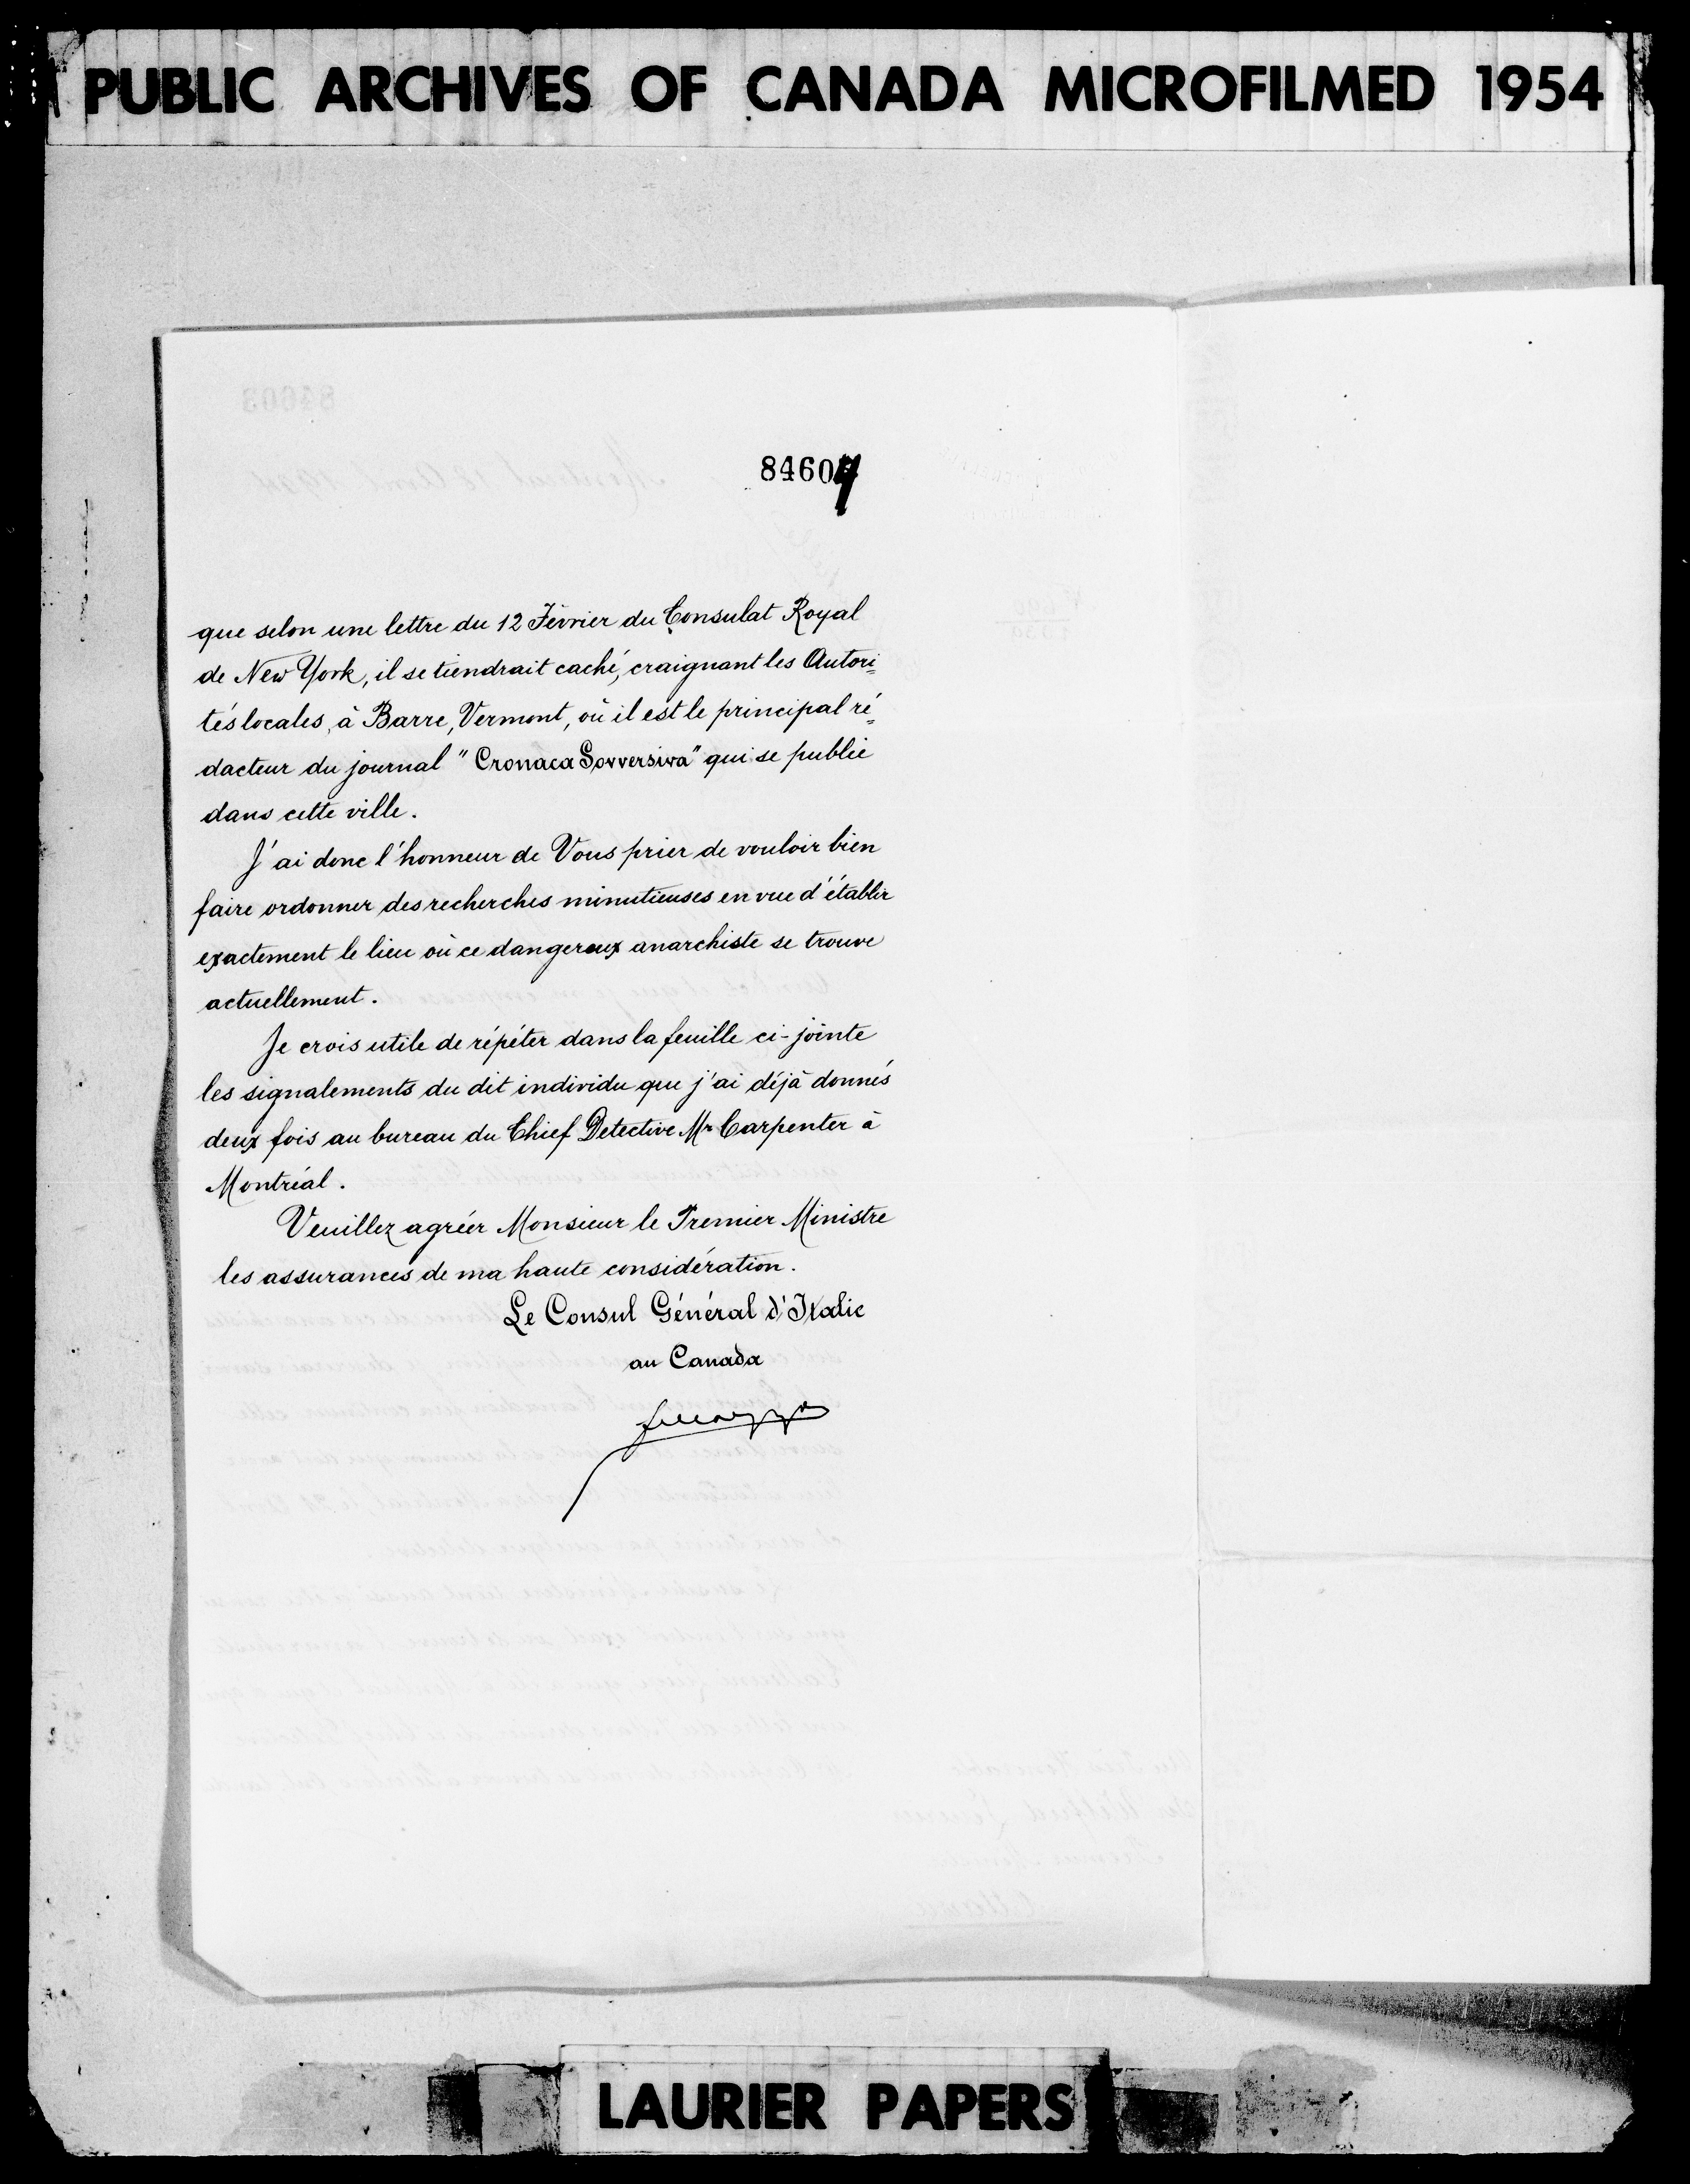 PUBLIC ARCHIVES OF CANADA MICROFILMED 1954
84604
que selon une lettre du 12 Février du Consulat Royal
de New York, il se tiendrait caché, craignant les Autori=
tés locales, à Barre, Vermont, où il est le principal ré=
dacteur du journal "Cronaca Sovversiva" qui se publie
dans cette ville.
J'ai donc l'honneur de Vous prier de vouloir bien
faire ordonner des recherches minutieuses en vue d'établir
exactement le lieu où ce dangereux anarchiste se trouve
actuellement.
Je crois utile de répéter dans la feuille ci-jointe
les signalements du dit individu que j'ai déjà donnés
deux fois au bureau du Chief Detective Mr Carpenter à
Montréal.
Veuillez agréer Monsieur le Premier Ministre
les assurances de ma haute considération.
Le Consul Général d'Italie
au Canada
LAURIER PAPERS